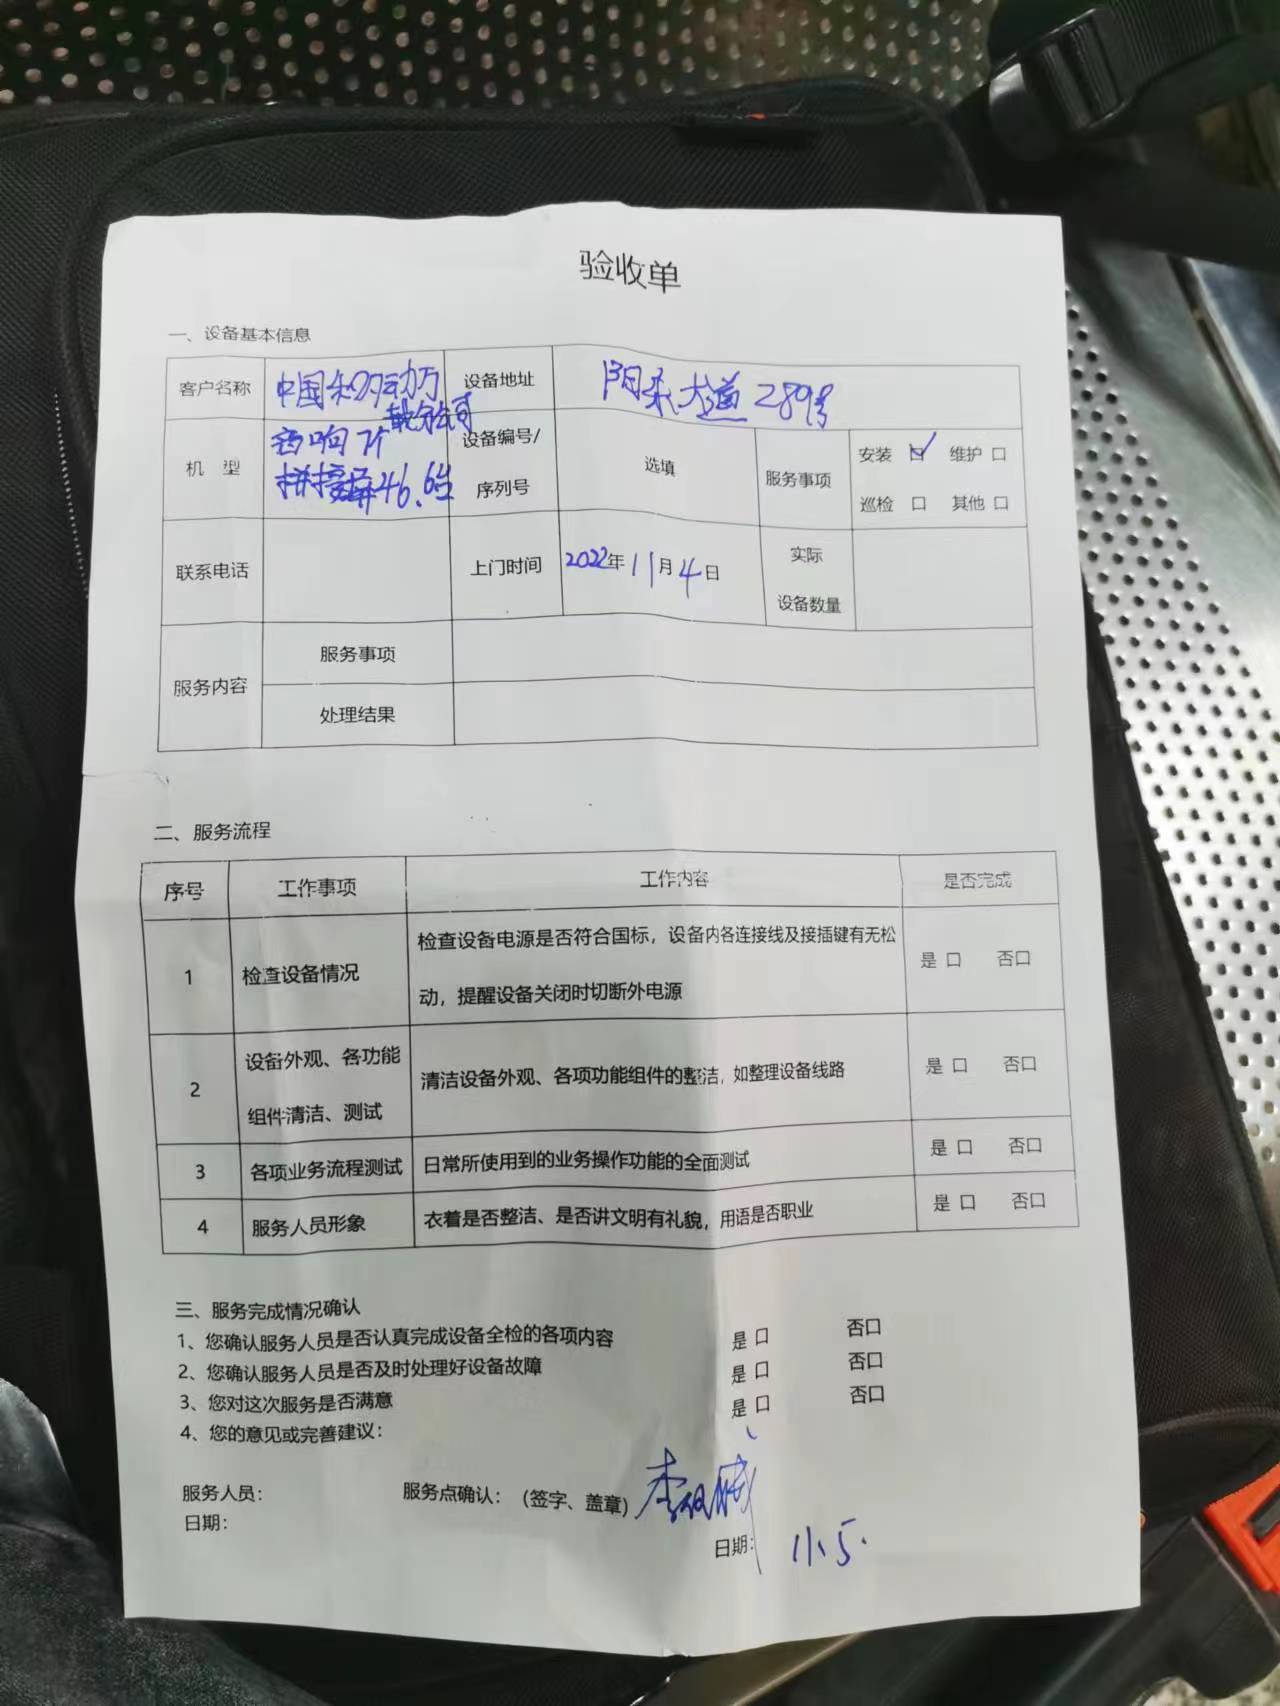 验收单
一、设备基本信息
客户名称 中国移动 设备地址 大道289号
机 型 音响7个 设备编号/序列号 选填 服务事项 安装 口 维护 口
拼接屏46. 巡检 口 其他 口
联系电话 上门时间 2022年11月4日 实际设备数量
服务内容 服务事项
处理结果
二、服务流程
序号 工作事项 工作内容 是否完成
1 检查设备情况 检查设备电源是否符合国标，设备内各连接线及接插键有无松 是 口 否口
动，提醒设备关闭时切断外电源
2 设备外观、各功能 清洁设备外观、各项功能组件的整洁，如整理设备线路 是 口 否口
组件清洁、测试
3 各项业务流程测试 日常所使用到的业务操作功能的全面测试 是 口 否口
4 服务人员形象 衣着是否整洁、是否讲文明有礼貌，用语是否职业 是 口 否口
三、服务完成情况确认
1、您确认服务人员是否认真完成设备全检的各项内容 是 口 否口
2、您确认服务人员是否及时处理好设备故障 是 口 否口
3、您对这次服务是否满意 是 口 否口
4、您的意见或完善建议：
服务人员： 服务点确认：（签字、盖章）李
日期： 日期： 11.5.